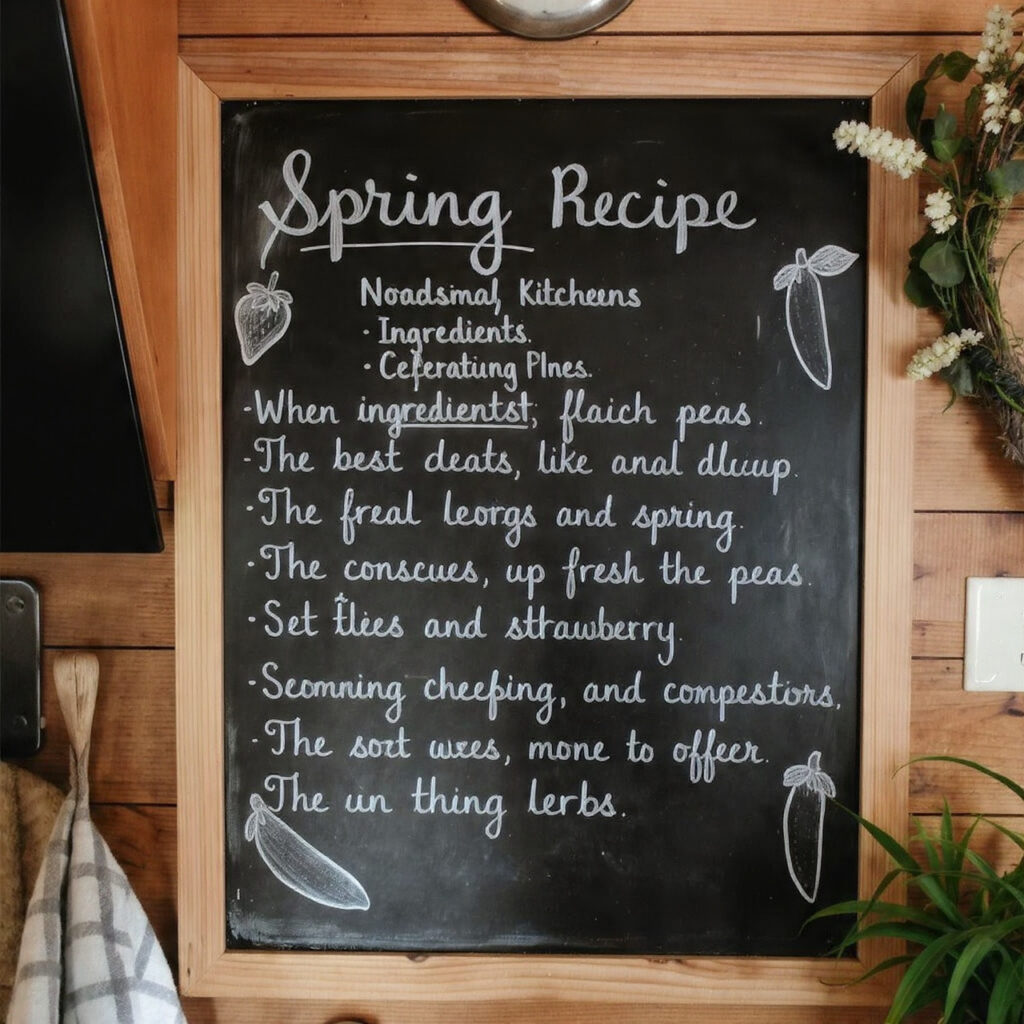 Spring Recipe
Noadsmal, Kitcheens
· Ingredients.
· Ceferatiung Plnes.
·When ingredientst, flaich peas.
-The best deats, like anal dluup.
·The freal leorgs and spring.
·The conscues, up fresh the peas.
·Set tlies and strawberry.
·Scomning cheeping, and compestiors,
·The sort wxes, mone to offeer.
·The un thing lerbs.